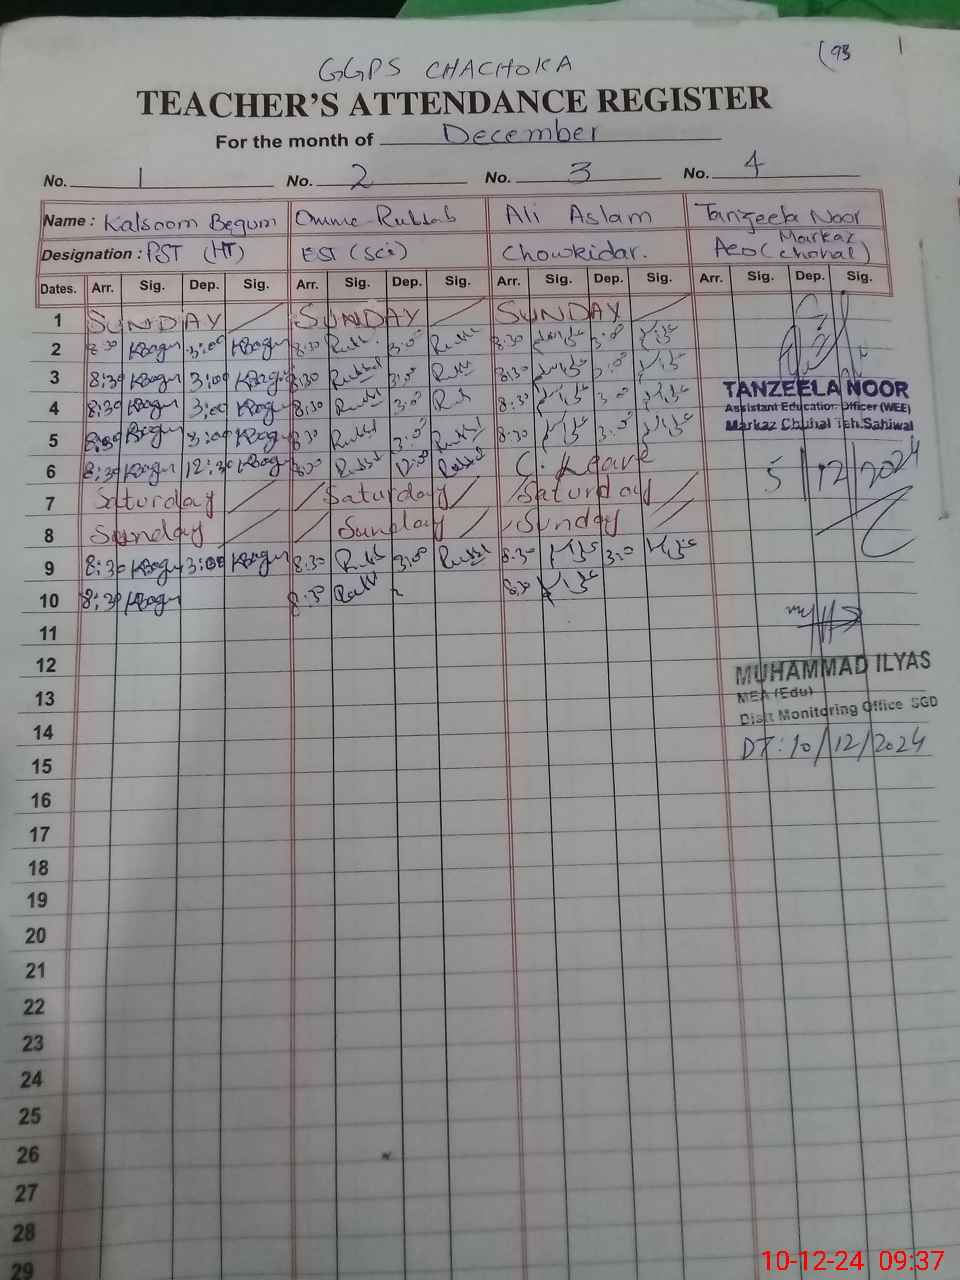 (93
GGPS CHACHOKA
TEACHER'S ATTENDANCE REGISTER
For the month of December
No. 1 No. 2 No. 3 No. 4
Name : Kalsoom Begum Omme Rubbab Ali Aslam Tanzeela Noor
Designation : PST (HT) EST (Sci) Chowkidar. AEO (Markaz Chohal)
Dates. Arr. Sig. Dep. Sig. Arr. Sig. Dep. Sig. Arr. Sig. Dep. Sig. Arr. Sig. Dep. Sig.
1 SUNDAY SUNDAY SUNDAY
2 8:30 KBegum 3:00 KBegum 8:30 3:00 8:30 3:00
3 8:30 KBegum 3:00 KBegum 8:30 3:00 8:30 3:00
TANZEELA NOOR
4 8:30 KBegum 3:00 KBegum 8:30 3:00 8:30 3:00
Assistant Education Officer (WEE)
Markaz Chuhal Teh.Sahiwal
5 8:30 KBegum 3:00 KBegum 8:30 3:00 8:30 3:00
6 8:30 KBegum 12:30 KBegum 8:30 12:00 C. Leave 5/12/2024
7 Saturday Saturday Saturday
8 Sunday Sunday Sunday
9 8:30 KBegum 3:00 KBegum 8:30 3:00 8:30 3:00
10 8:30 KBegum 8:30 8:30
11
12
MUHAMMAD ILYAS
13
MEA (Edu)
Distt Monitoring Office SGD
14
DT: 10/12/2024
15
16
17
18
19
20
21
22
23
24
25
26
27
28
29
10-12-24 09:37